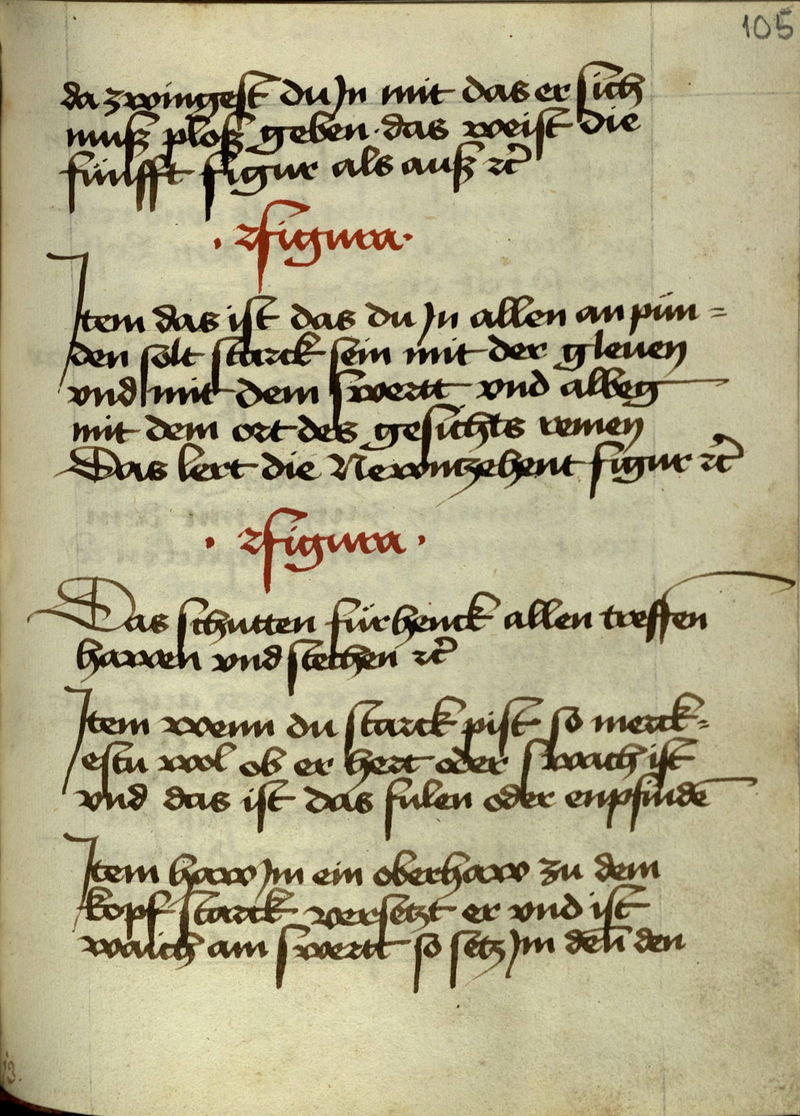 105
da zwingest du Jn mit das er sich
muß ploß geben · das weist die
fünfft figur als auß ꝛc̃
· 2figura ·
Jtem das ist das du Jn allen an pün =
den solt starck sein mit der gleuen
vnd mit dem swertt vnd albeg
mit dem ort des gesichts remen
Das lert die Newntzehent figur ꝛc̃
· 2figura ·
Das schutten für henck allen treffen
hawen vnd stechen ꝛc̃
Jtem wenn du starck pist so merck=
estu wol ob er hert oder swach ist
vnd das ist das fulen oder enpfindē
Jtem haw Jm ein oberhaw zu dem
kopf starck versetzt er vnd ist
waich am swertt so setz Jm den̄ den